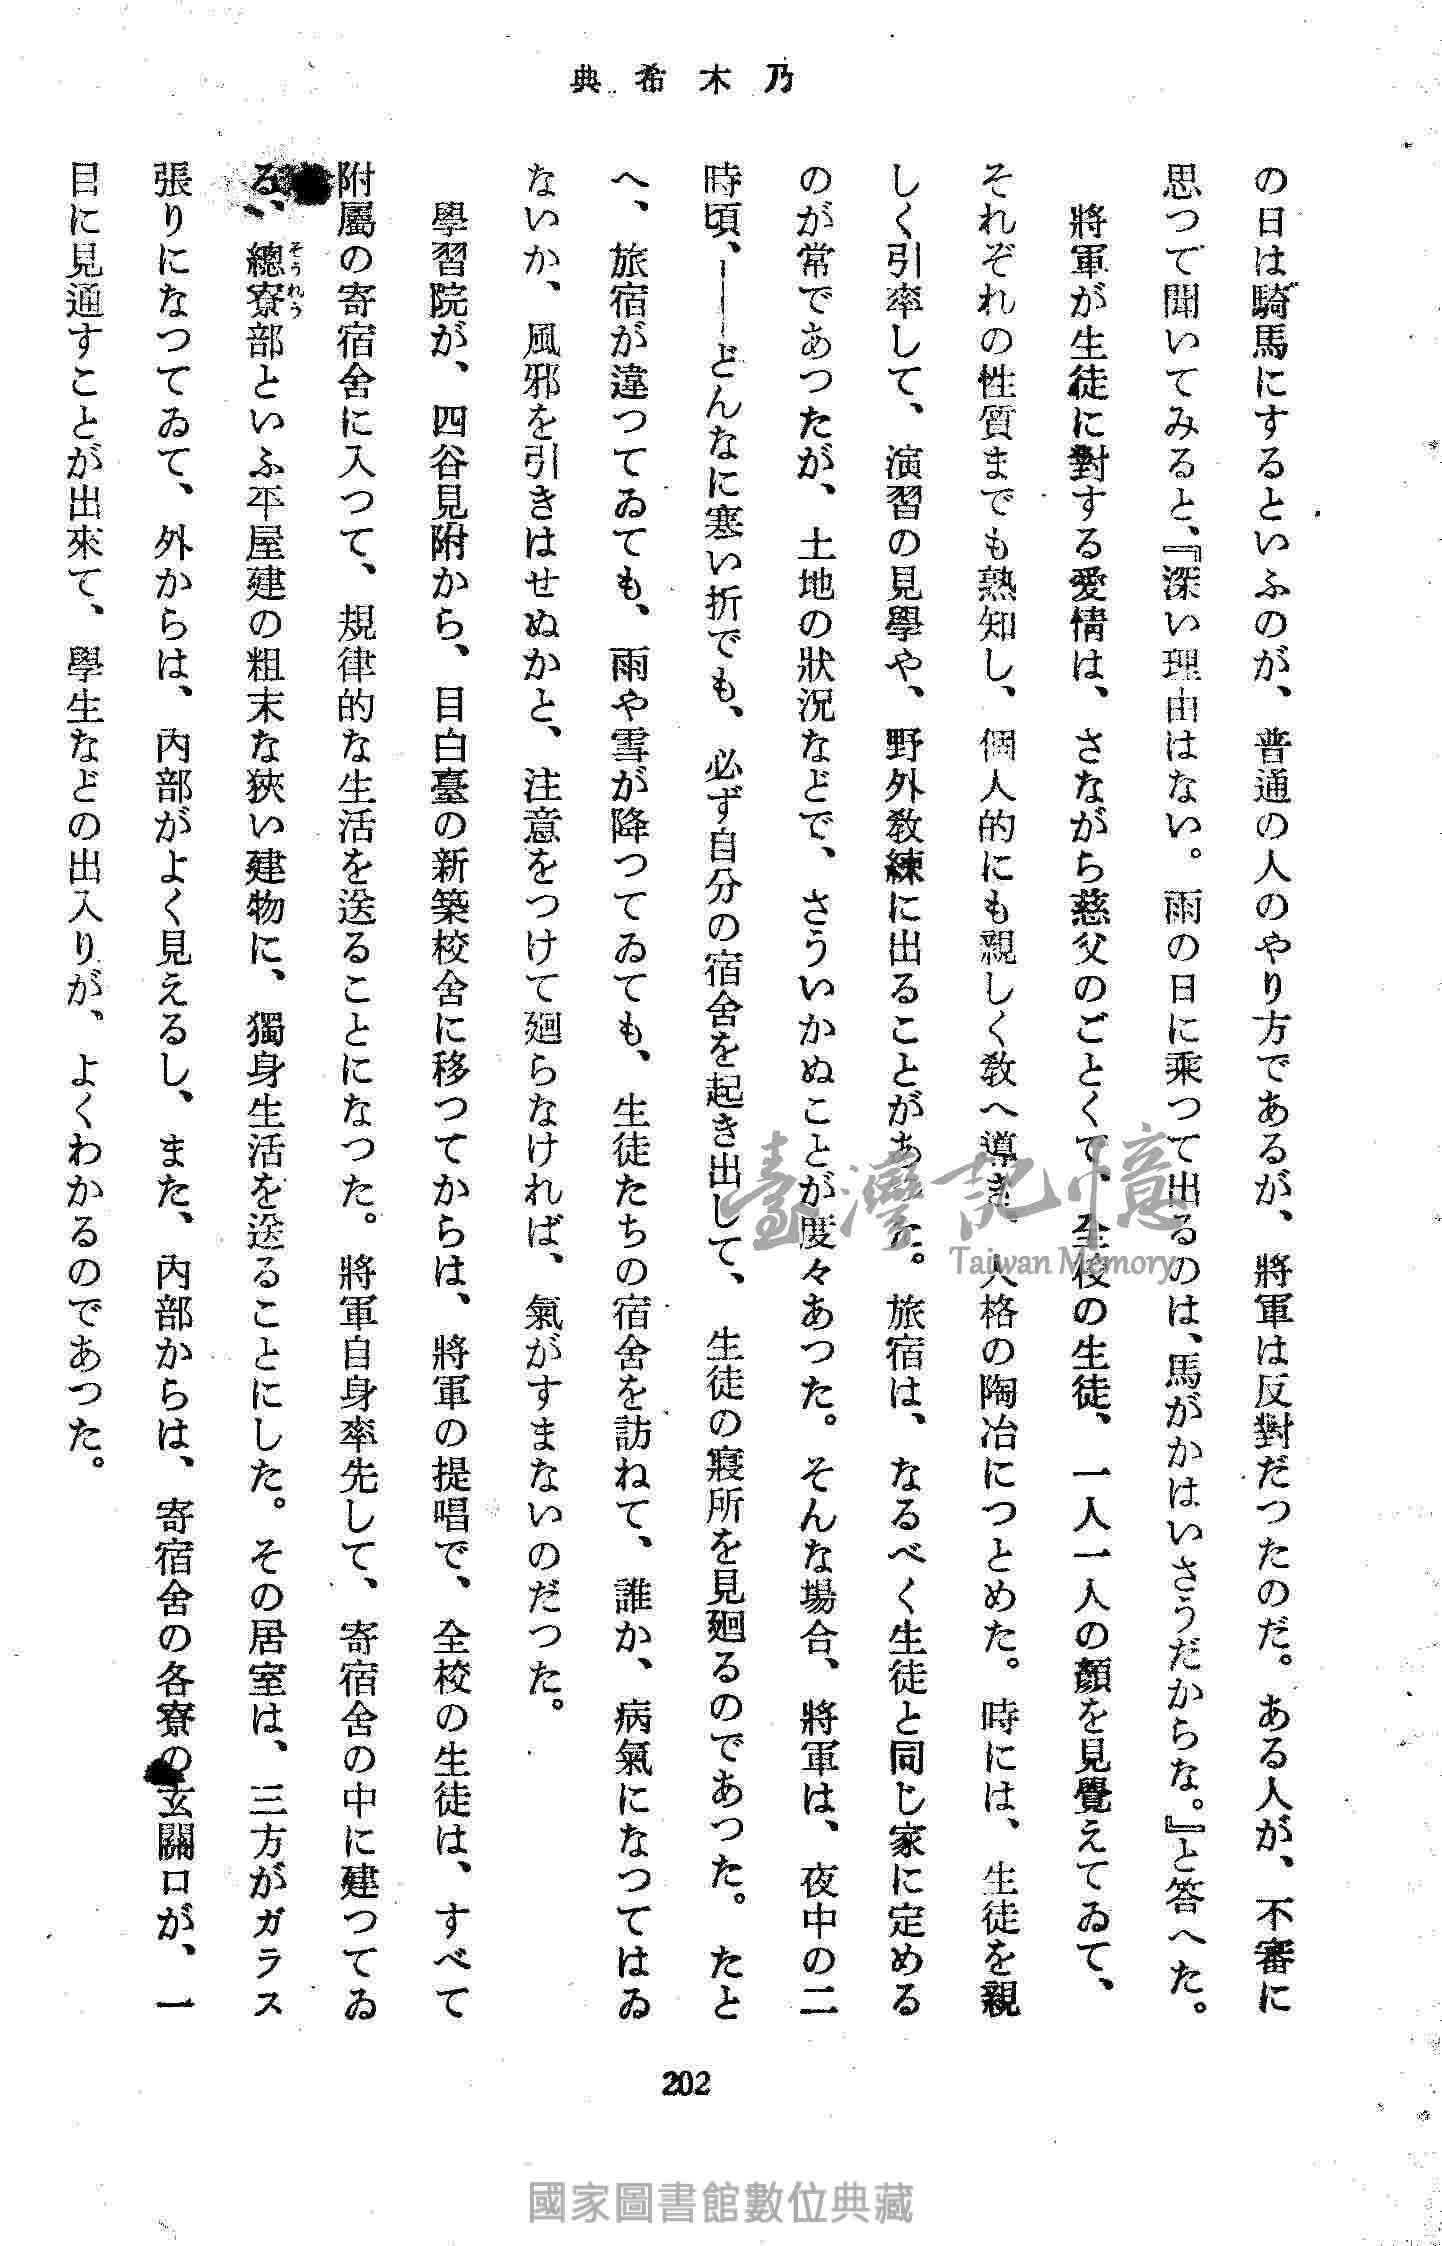 乃木希典
の日は騎馬にするといふのが、普通の人のやり方であるが、將軍は反對だつたのだ。ある人が、不審に
思つて聞いてみると、『深い理由はない。雨の日に乘つて出るのは、馬がかはいさうだからな。』と答へた。
將軍が生徒に對する愛情は、さながら慈父のごとくで、全校の生徒、一人一人の顏を見覺えてゐて、
それぞれの性質までも熟知し、個人的にも親しく敎へ導き、人格の陶冶につとめた。時には、生徒を親
しく引率して、演習の見學や、野外敎練に出ることがあつた。旅宿は、なるべく生徒と同じ家に定める
のが常であつたが、土地の狀況などで、さういかぬことが度々あつた。そんな場合、將軍は、夜中の二
時頃、――どんなに寒い折でも、必ず自分の宿舍を起き出して、生徒の寢所を見廻るのであつた。たと
へ、旅宿が違つてゐても、雨や雪が降つてゐても、生徒たちの宿舍を訪ねて、誰か、病氣になつてはゐ
ないか、風邪を引きはせぬかと、注意をつけて廻らなければ、氣がすまないのだつた。
學習院が、四谷見附から、目白臺の新築校舍に移つてからは、將軍の提唱で、全校の生徒は、すべて
附屬の寄宿舍に入つて、規律的な生活を送ることになつた。將軍自身率先して、寄宿舍の中に建つてゐ
る、總寮部といふ平屋建の粗末な狹い建物に、獨身生活を送ることにした。その居室は、三方がガラス
そうれう
張りになつてゐて、外からは、內部がよく見えるし、また、內部からは、寄宿舍の各寮の玄關口が、一
目に見通すことが出來て、學生などの出入りが、よくわかるのであつた。
202
臺灣記憶
Taiwan Memory
國家圖書館數位典藏